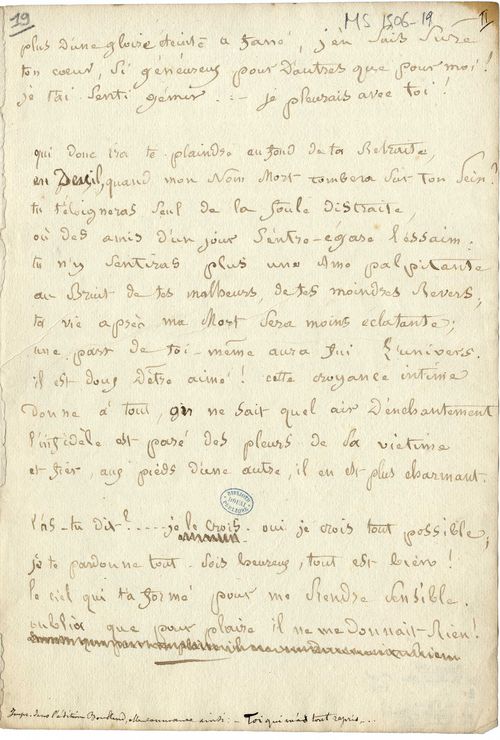 19
MS 1506-19
II
plus d'une gloire eteinte a fané, j'en suis sure
ton coeur, si généreux pour d'autres que pour moi!
je t'ai senti gémir. :- je pleurais avec toi!
qui donc ira te plaindre au fond de ta Retraite,
en Deuil, quand mon Nom Mort tombera sur ton sein?
tu t'éloigneras seul de la foule distraite,
où des amis d'un jour s'entre-egare l'essaim:
tu n'y sentiras plus une âme palpitante
au Bruit de tes malheurs, de tes moindres Revers;
ta vie après ma Mort sera moins eclatante;
une part de toi-même aura fui l'univers.
il est doux d'être aimé! cette croyance intime
Donne à tout, on ne sait quel air D'enchantement
l'infidèle est paré des pleurs de sa victime
et fier, aux pieds d'une autre, il en est plus charmant.
l'as-tu dit? .... je le crois. oui je crois tout possible;
je te pardonne tout. sois heureux, tout est bien!
le ciel qui t'a formé pour me Rendre sensible.
oublia que pour plaire il ne me donnait Rien!
Impr. dans l'édition , elle commence ainsi: - Toi qui m'as tout repris...